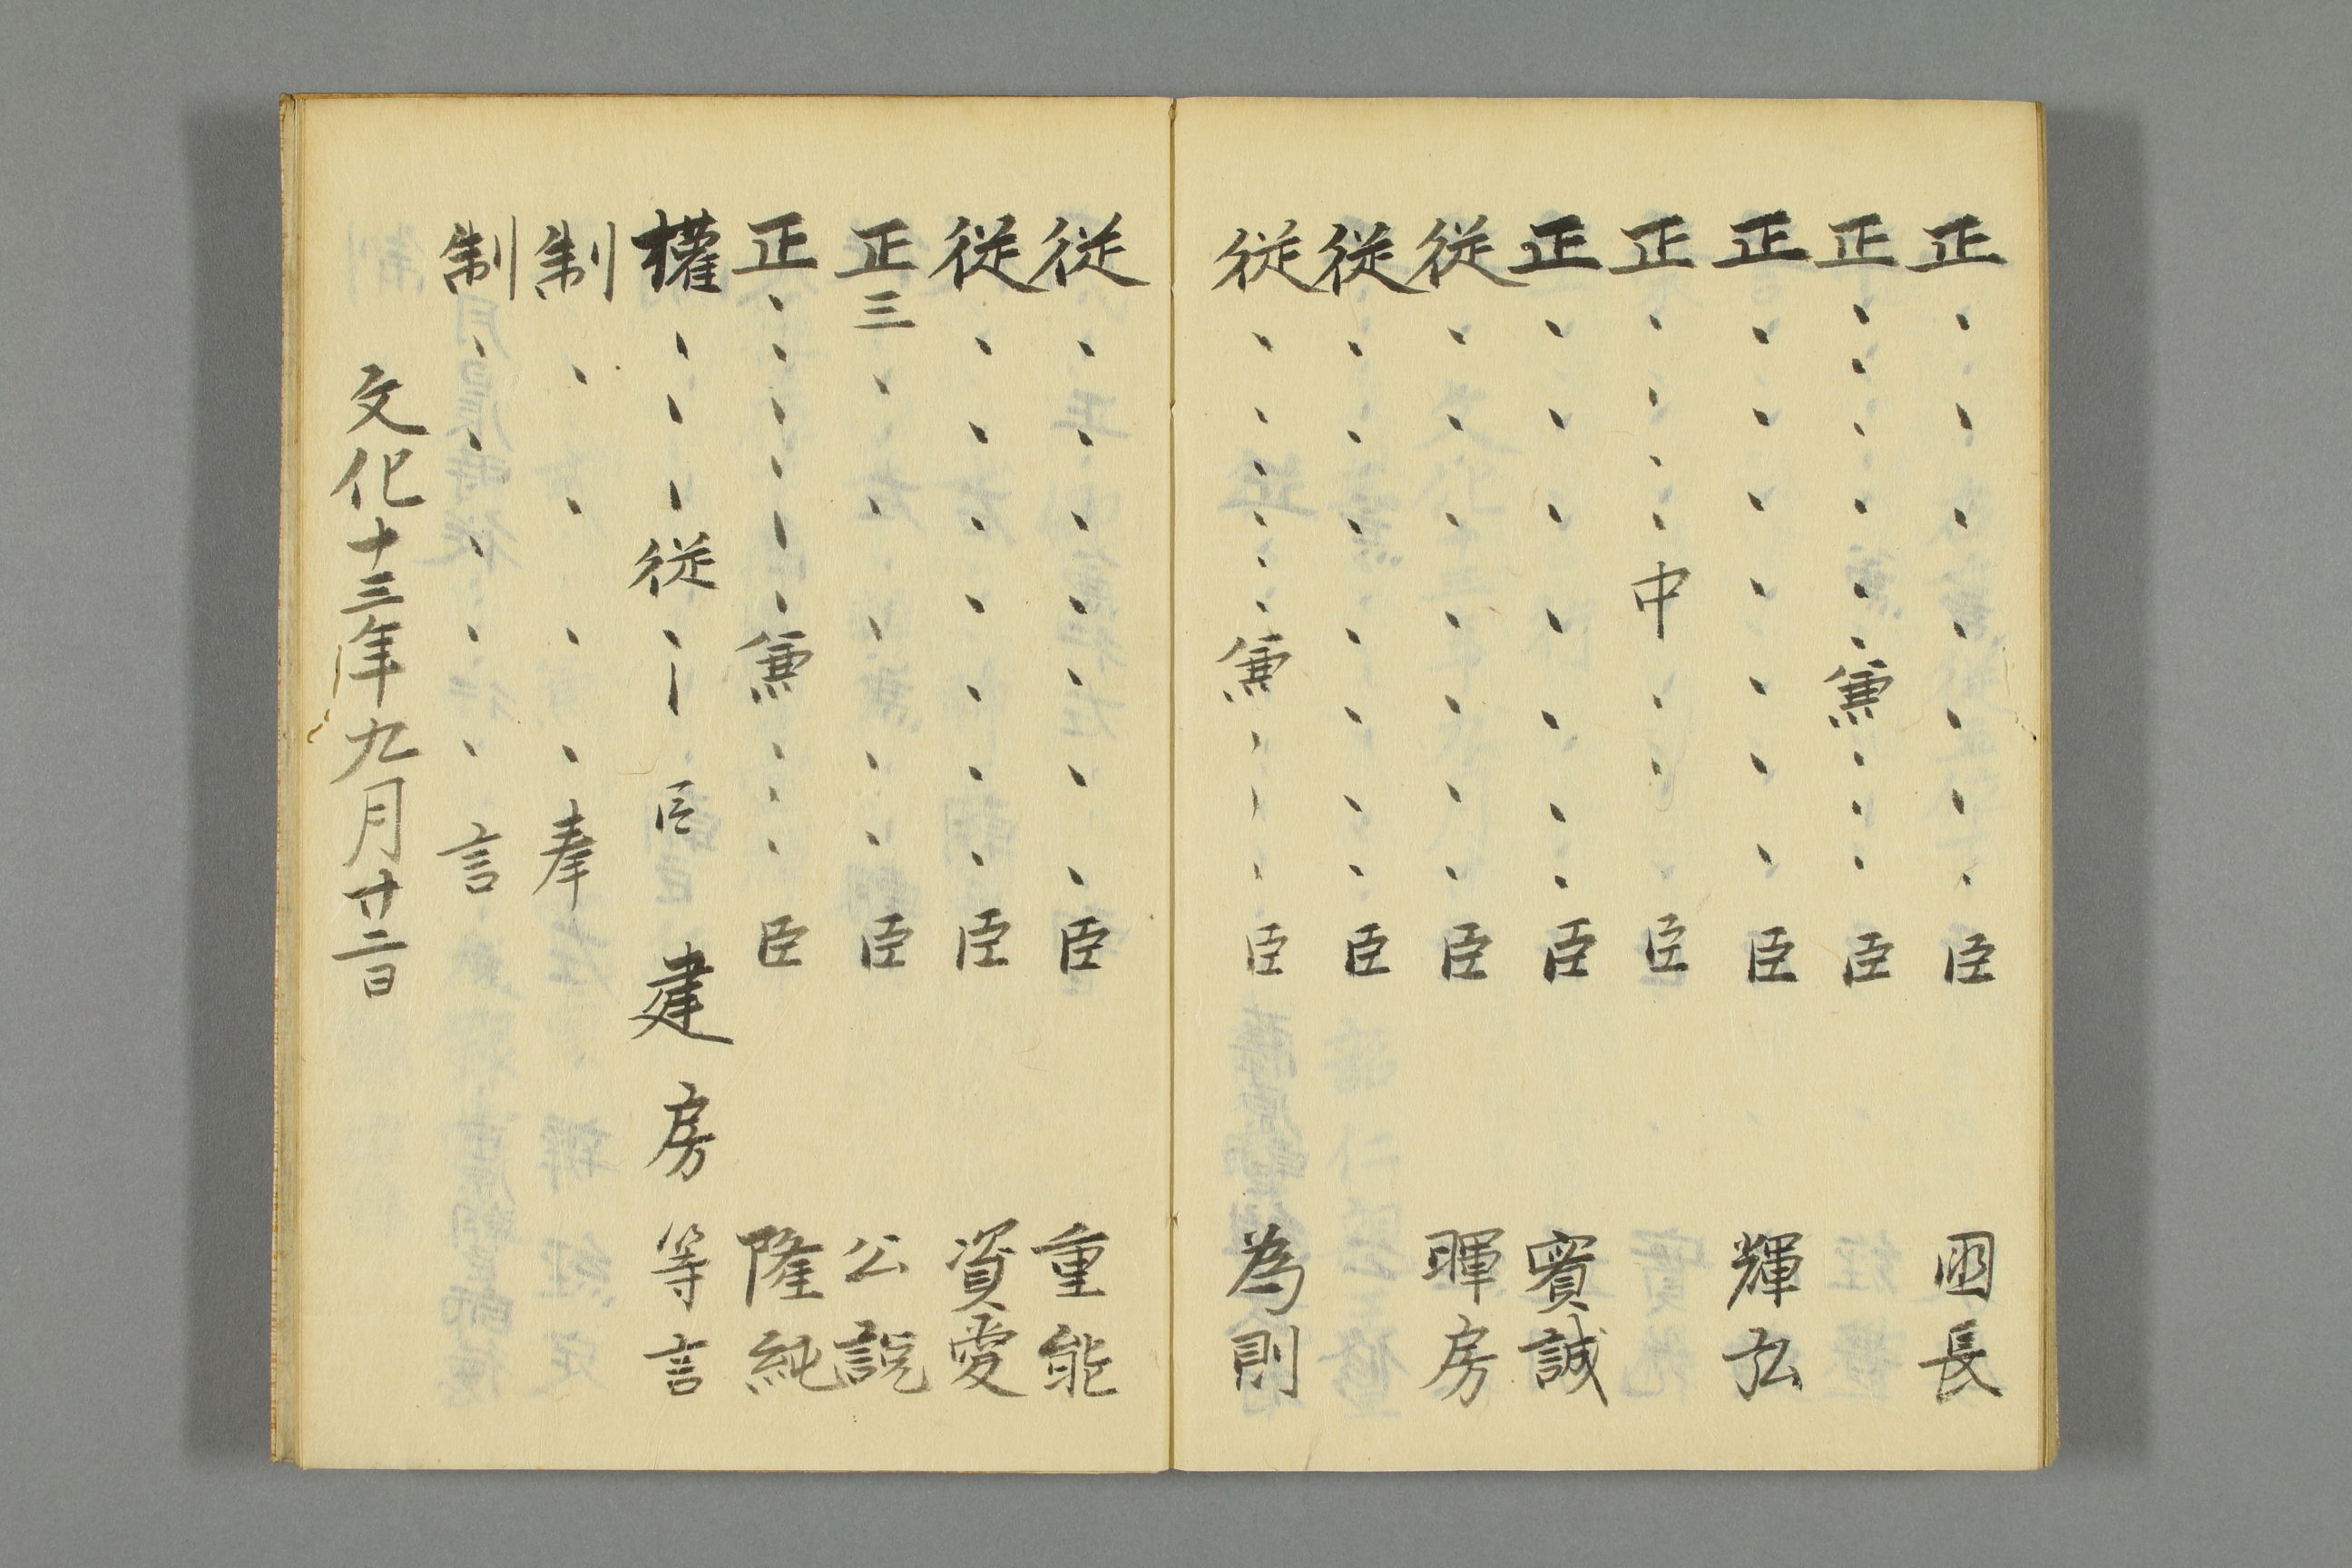 正、、、、、、、臣 国長
正、、、、、、兼、、、臣
正、、、、、、、臣 輝弘
正、、、、中、、臣
正、、、、、、、臣 賓誠
従、、、、、、、臣 暉房
従、、、、、、、臣
従、、、、、、兼、、、臣 為則
従、、、、、、、臣 重能
従、、、、、、、臣 資愛
正三、、、、、臣 公説
正、、、、、、兼、、、臣 隆純
權、、、従、、臣 建房 等言
制、、、、奉
制、、、、、言
文化十三年九月廿二日